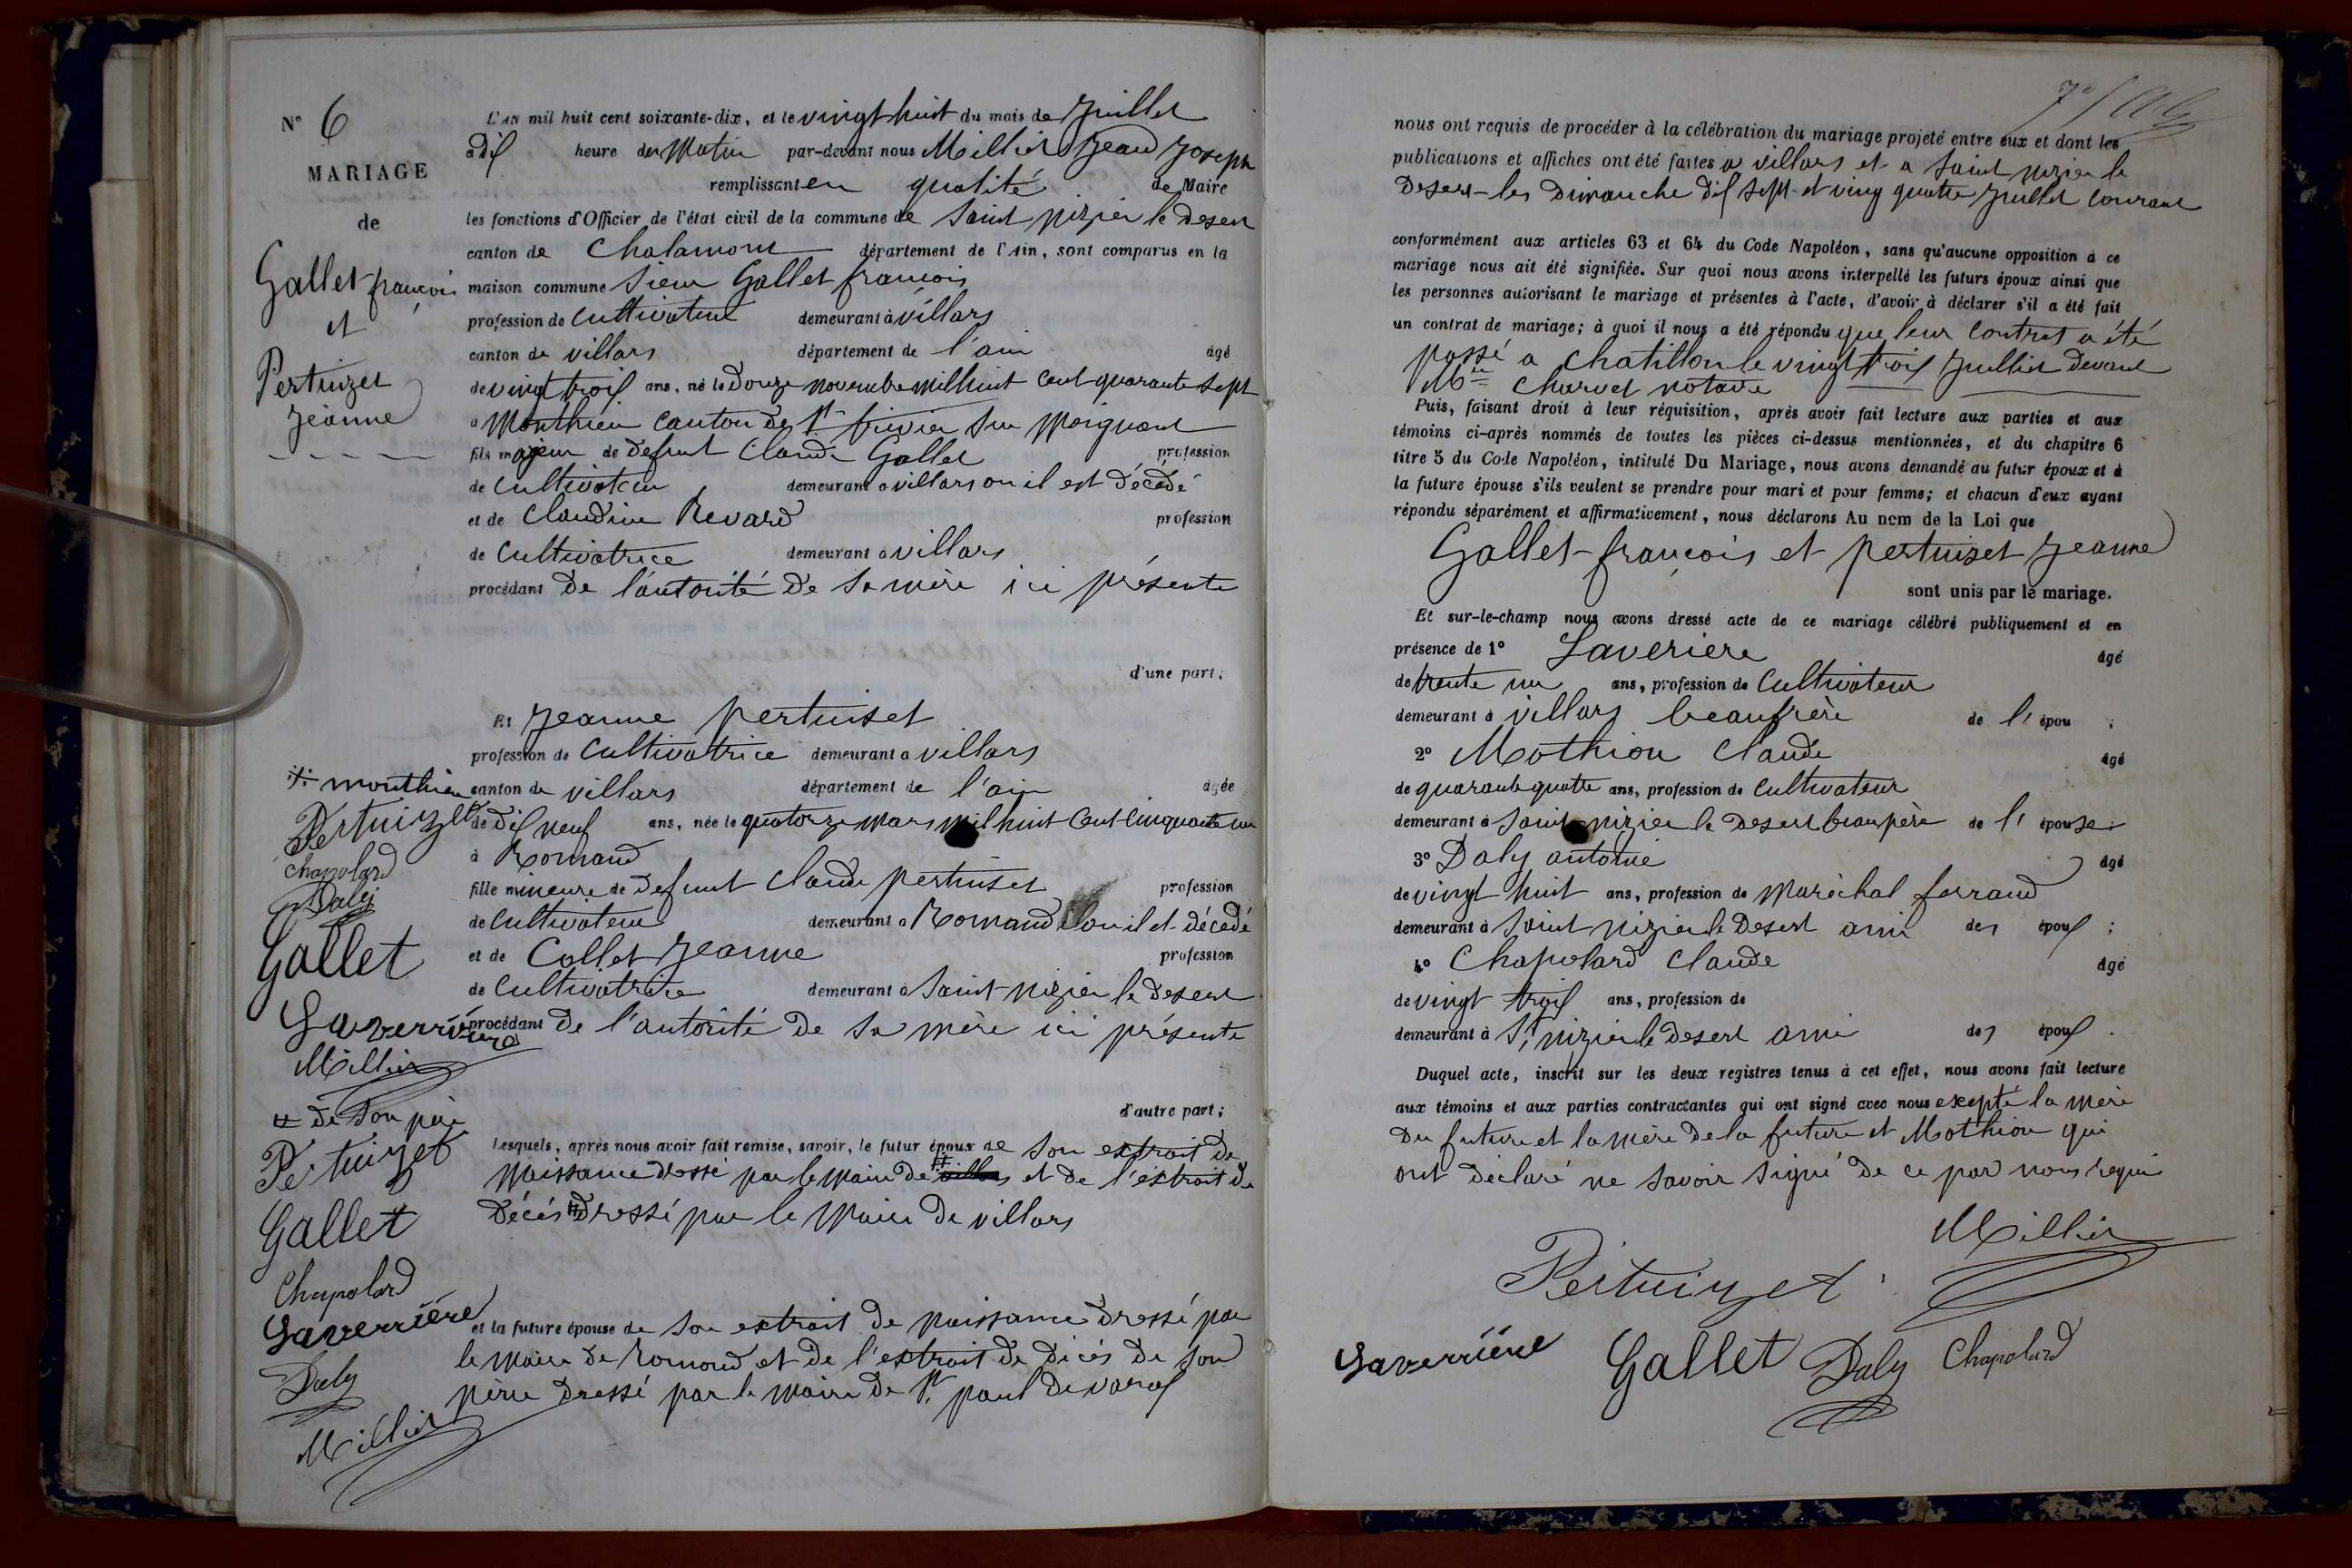 N° 6
MARIAGE
de
Gallet françois
et
Pertuizet
Jeanne
L'AN mil huit cent soixante-dix, et le vingt huit du mois de Juillet
à dix heure du Matin par-devant nous Millier Jean Joseph
remplissant en qualité de Maire
les fonctions d'Officier de l'état civil de la commune de Saint nizier le desert
canton de Chalamont département de l'Ain, sont comparus en la
maison commune Sieur Gallet françois
profession de cultivateur demeurant à villars
canton de villars département de l'ain âgé
de vingt trois ans, né le Douze novembre mil huit cent quarante sept
a Monthieu canton de St trivier sur Moignant
fils majeur de defunt Claude Gallet profession
de cultivateur demeurant a villars ou il est décédé
et de Claudine Revard profession
de cultivatrice demeurant a villars
procédant de l'autorité de sa mère ici présente
d'une part;
Et Jeanne pertuiset
profession de cultivatrice demeurant a villars
canton de villars département de l'ain âgée
de dix neuf ans, née le quatorze mars mil huit cent cinquante un
à Romand
fille mineure de defunt Claude pertuiset profession
de cultivateur demeurant a Romand ou il et décédé
et de Collet Jeanne profession
de cultivatrice demeurant à Saint-nizier le desert
procédant de l'autorité de sa mère ici présente
d'autre part;
Lesquels, après nous avoir fait remise, savoir, le futur époux de son extrait de
naissance dressé par le maire de villars et de l'extrait de
Décés # dressé par le Maire de villars
et la future épouse de son extrait de naissance dressé par
le maire de Romand et de l'extrait de décés de son
père dressé par le maire de St paul de varax
monthieu
Pertuizet
Chapolard
Daly
Gallet
Laverrière
Millier
# de son père
Pertuizet
Gallet
Chapolard
Laverrière
Daly
Millier
nous ont requis de procéder à la célébration du mariage projeté entre eux et dont les
publications et affiches ont été faites a villars et a Saint nizier le
Desert les Dimanche dix sept et ving quatre Juillet courant
conformément aux articles 63 et 64 du Code Napoléon, sans qu'aucune opposition à ce
mariage nous ait été signifiée. Sur quoi nous avons interpellé les futurs époux ainsi que
les personnes autorisant le mariage et présentes à l'acte, d'avoir à déclarer s'il a été fait
un contrat de mariage; à quoi il nous a été répondu que leur contrat a été
passé a Chatillon le vingt trois Juillet devant
Charvet notaire
Puis, faisant droit à leur réquisition, après avoir fait lecture aux parties et aux
témoins ci-après nommés de toutes les pièces ci-dessus mentionnées, et du chapitre 6
titre 5 du Code Napoléon, intitulé Du Mariage, nous avons demandé au futur époux et à
la future épouse s'ils veulent se prendre pour mari et pour femme; et chacun d'eux ayant
répondu séparément et affirmativement, nous déclarons Au nom de la Loi que
Gallet françois et pertuiset Jeanne
sont unis par le mariage.
Et sur-le-champ nous avons dressé acte de ce mariage célébré publiquement et en
présence de 1° Laveriere âgé
de trente un ans, profession de Cultivateur
demeurant à villars beaufrère de l' épou ;
2° Mothion Claude âgé
de quarante quatre ans, profession de Cultivateur
demeurant à Saint-nizier le Desert beaupère de l' épouse
3° Daly antoine âgé
de vingt huit ans, profession de Maréchal ferrand
demeurant à Saint nizier le Desert ami des époux ;
4° Chapolard Claude âgé
de vingt trois ans, profession de
demeurant à St nizier le Desert ami des époux .
Duquel acte, inscrit sur les deux registres tenus à cet effet, nous avons fait lecture
aux témoins et aux parties contractantes qui ont signé avec nous excepté la mère
du future et la mère de la future et Mothion qui
ont déclaré ne savoir signé de ce par nous requi
Millier
Pertuizet
Laverrière Gallet Daly Chapolard